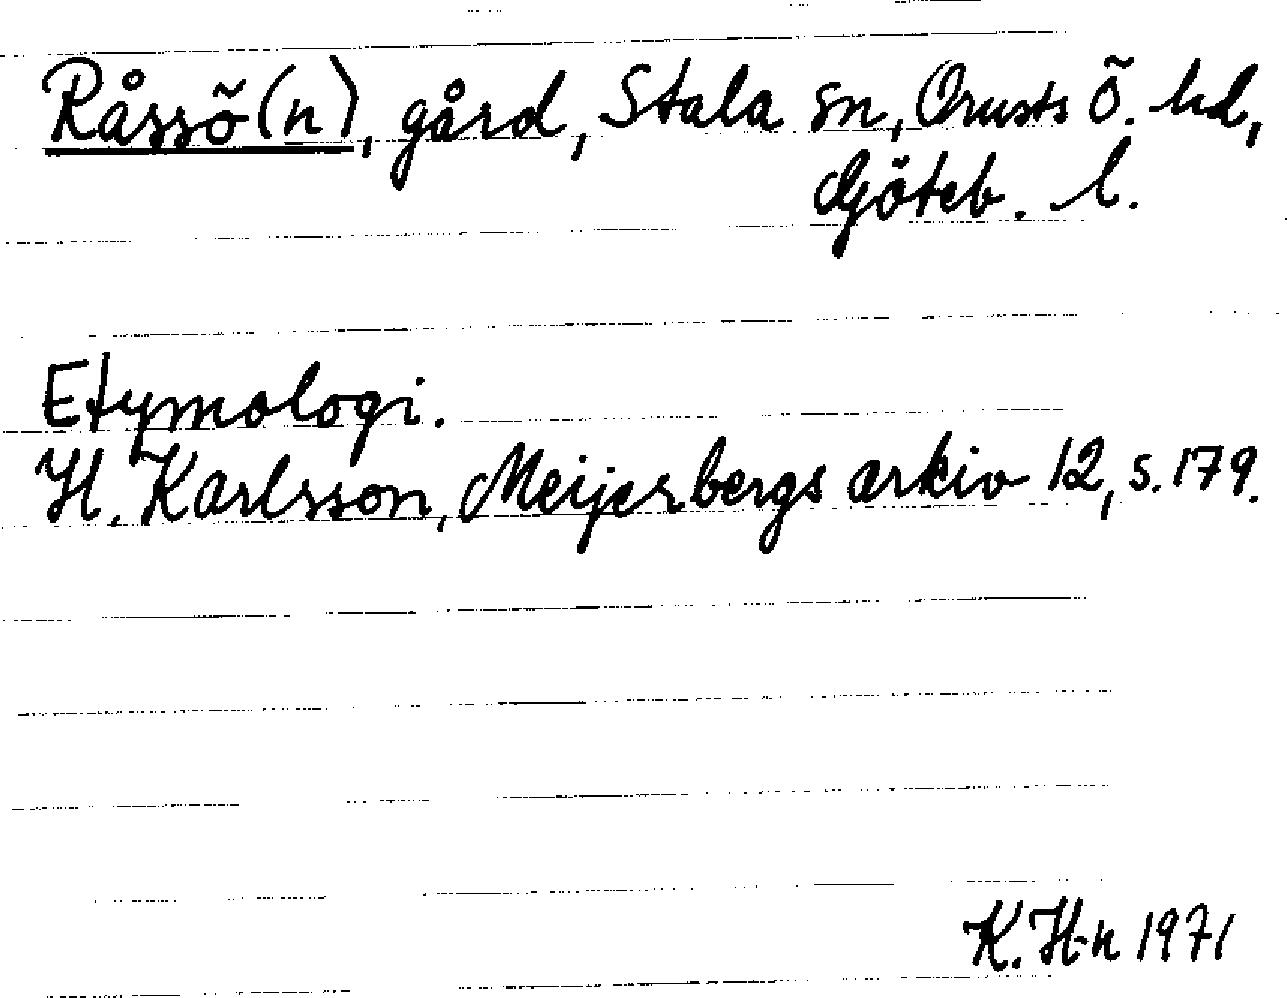 Råssö(n), gård, Stala sn, Orusts Ö. hd,
Göteb. l.
Etymologi.
H. Karlsson, Meijerbergs arkiv 12, s. 179.
K. H-n 1971